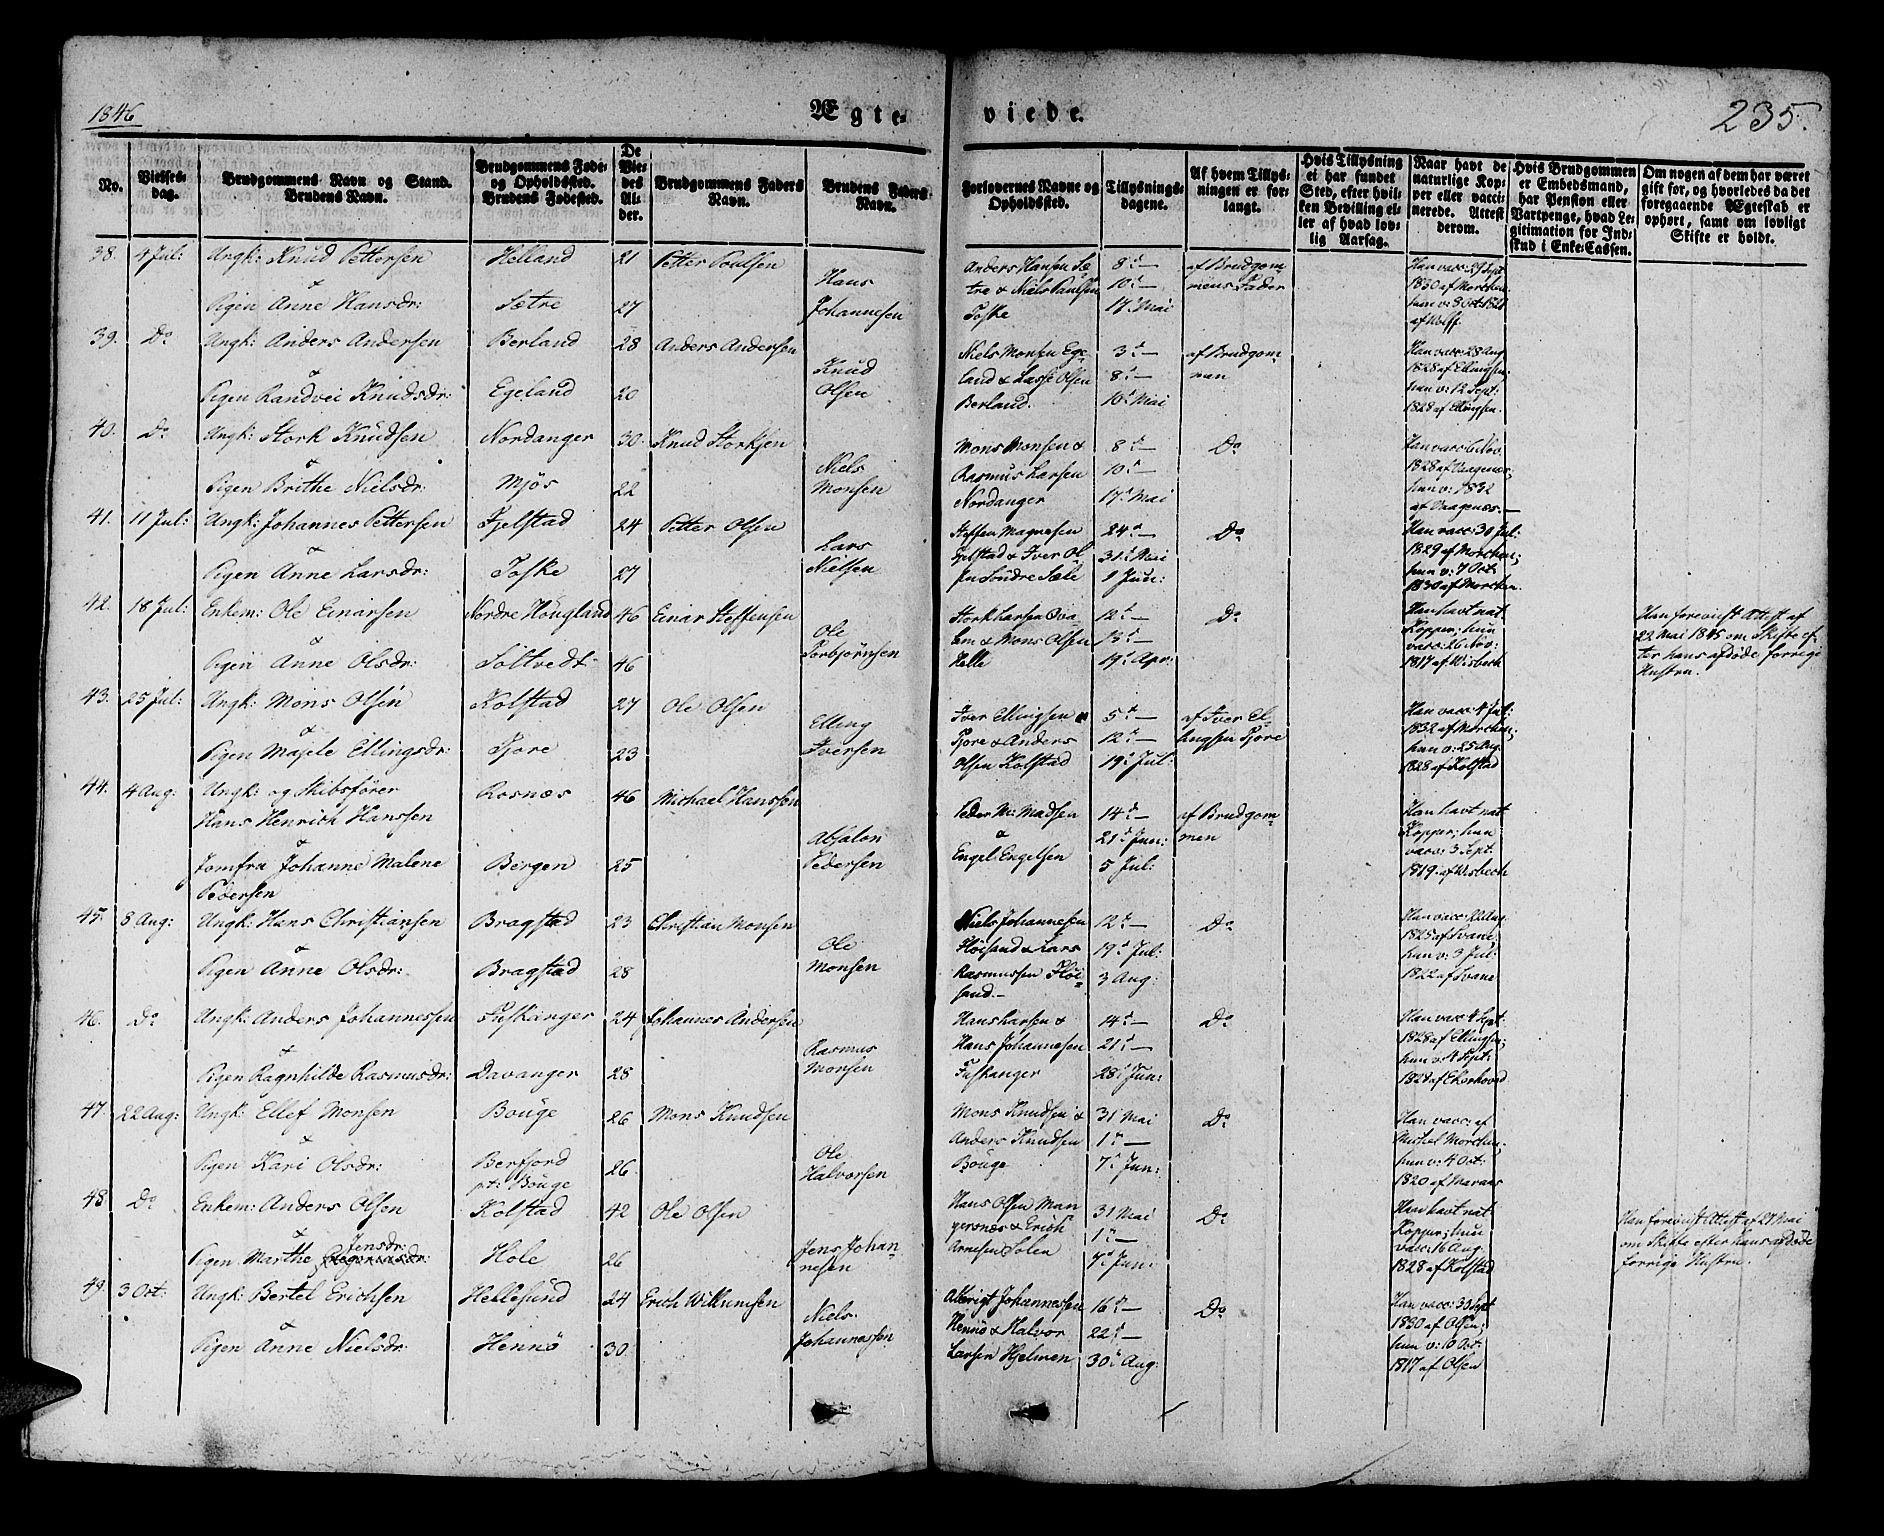 1846
Ægte-
viede.
235.
No.
Vielses-
dag.
Brudgommens Navn og Stand.
Brudens Navn.
Brudgommens Føde-
og Opholdssted.
Brudens Fødested.
De
Vie-
des
Al-
der.
Brudgommens Faders
Navn.
Brudens Faders
Navn.
Forlovernes Navne og
Opholdssted.
Tillysnings-
dagene.
Af hvem Tillys-
ningen er for-
langt.
Hvis Tillysning
ei har fundet
Sted, efter hvil-
ken Bevilling el-
ler af hvad lov-
lig Aarsag.
Naar havt de
naturlige Kop-
per eller vacci-
nerede. Attest
derom.
Hvis Brudgommen
er Embedsmand,
har Pension eller
Vartpenge, hvad Le-
gitimation for Ind-
skud i Enke-Cassen.
Om nogen af dem har været
gift før, og hvorledes da det
foregaaende Ægteskab er
ophørt, samt om lovligt
Skifte er holdt.
38. 4 Jul: Ungk: Knud Pettersen Helland 21 Petter Poulsen
&
Pigen Anne Hansdr: Sætre 27
Hans
Johannesen
Anders Hansen Sæ-
tre & Niels Paulsen
Toske
8d —
10d —
17d Mai
af Brudgom-
mens Fader
Han vacc: 29 Sept
1830 af Morchen
hun v: 8 Oct:
af Wolff.
39. Do Ungk: Anders Andersen Berland 28 Anders Andersen
&
Pigen Randvei Knudsdr: Egeland 20
Knud
Olsen
Niels Monsen Ege-
land & Lasse Olsen
Berland.
3d —
8d —
10d Mai
af Brudgom-
men
Han vacc: 28 Aug
1828 af Ellingsen.
hun v: 12 Sept:
1828 af Ellingsen.
40. Do Ungk: Stork Knudsen Nordanger 30 Knud Storksen
&
Pigen Brithe Nielsdr: Mjøs 22
Niels
Monsen
Mons Monsen &
Rasmus Larsen
Nordanger
8d —
10d —
17d Mai
Do
Han vacc: 6 Nov
1828 af Aagenæs;
hun v: 1832
af Aagenæs. —
41. 11 Jul: Ungk: Johannes Pettersen Fjelstad 24 Petter Olsen
&
Pigen Anne Larsdr: Toske 27
Lars
Nielsen
Steffen Magnesen
Fjelstad & Iver Ol-
sen Søndre Sæle
24d —
31d Mai
1 Jun:
Do
Han vacc: 30 Jul:
1829 af Morchen;
hun v: 7 Oct
1830 af Morchen.
42. 18 Jul: Enkem: Ole Einarsen Nordre Hougland 46 Einar Steffensen
&
Pigen Anne Olsdr: Soltvedt 46
Ole
Torbjørnsen
Stork Larsen Qva-
lem & Mons Olsen
Helle
12d —
13d —
19d Apr:
Do
Han havt nat
Kopper; hun
vacc: 26 Nov:
1817 af Wisbech
Han foreviist Attest af
22 Mai 1845 om Skifte ef-
ter hans afdøde forrige
Hustru.
43. 25 Jul: Ungk: Mons Olsen Kolstad 27 Ole Olsen
&
Pigen Majele Ellingsdr: Fjore 23
Elling
Iversen
Iver Ellingsen
Fjore & Anders
Olsen Kolstad
5d —
12d —
19d Jul:
af Iver El-
lingsen Fjore
Han vacc: 4 Jul:
1832 af Morchen;
hun v: 25 Aug:
1828 af Kolstad
44. 4 Aug: Ungk: og Skibsfører Rosnæs 46 Michael Hanssen
Hans Henrich Hanssen
&
Jomfru Johanne Malene Bergen 25
Pedersen
Absalon
Pedersen
Peder M: Madsen
&
Engel Engelsen
14d —
21d Jun:
5 Jul:
af Brudgom-
men
Han havt nat
Kopper; hun
vacc: 3 Sept:
1819 af Wisbech
45. 8 Aug: Ungk: Hans Christiansen Bragstad 23 Christian Monsen
&
Pigen Anne Olsdr: Bragstad 28
Ole
Monsen
Niels Johannesen
Høisand & Lars
Rasmussen Høi-
sand. —
12d —
19d Jul:
3 Aug:
Do
Han vacc: 22 Aug:
1825 af Svane;
hun v: 3 Jul:
1822 af Svane
46. Do Ungk: Anders Johannessen Fuskanger 24 Johannes Andersen
&
Pigen Ragnhilde Rasmusdr: Davanger 28
Rasmus
Monsen
Hans Larsen &
Hans Johannesen
Fuskanger
14d —
21d —
28d Jun:
Do
Han vacc: 4 Sept
1828 af Ellingsen;
hun v: 4 Sept:
1828 af Ekerhovd
47 22 Aug: Ungk: Ellef Monsen Bouge 26 Mons Knudsen
&
Pigen Kari Olsdr: Berfjord 26.
pt: Bouge
Ole
Halvorsen
Mons Knudsen &
Anders Knudsen
Bouge
31 Mai
1d —
7d Jun:
Do
Han vacc: af
Michel Morchen;
hun v: 4 Oct:
1820 af
48. Do Enkem: Anders Olsen Kolstad 42 Ole Olsen
&
Jensdr:
Pigen Marthe Hole 26
Jens Johan-
nesen
Hans Olsen Man
gersnæs & Erich
Arnesen Solem
31 Mai
1d —
7d Jun:
Do
Han havt nat
Kopper; hun
vacc: 16 Aug:
1828 af Kolstad
Han foreviist Attest af 27 Mai
om Skifte efter hans afdøde
forrige Hustru.
49. 3 Oct: Ungk: Bertel Erichsen Hellesund 24 Erich Wilumsen
&
Pigen Anne Nielsdr: Hennø 30
Niels
Johannessen
Albrigt Johannessen
Hennø & Halvor
Larsen Hjelmen
16d —
22d —
30d Aug:
Do
Han vacc: 30 Sept
1830 af Olsen;
hun v: 10 Oct:
1817 af Olsen